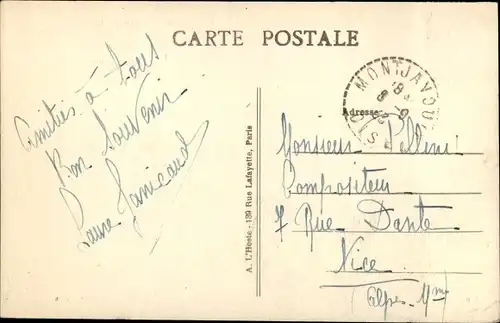 CARTE POSTALE
MONTJAVOULT
OISE
Amitiés à tous
Bon Souvenir
Adresse
Monsieur Pellini
Compositeur
7 Rue Dante
Nice
(Alpes-Mmes
A. L'Hoste - 139 Rue Lafayette, Paris